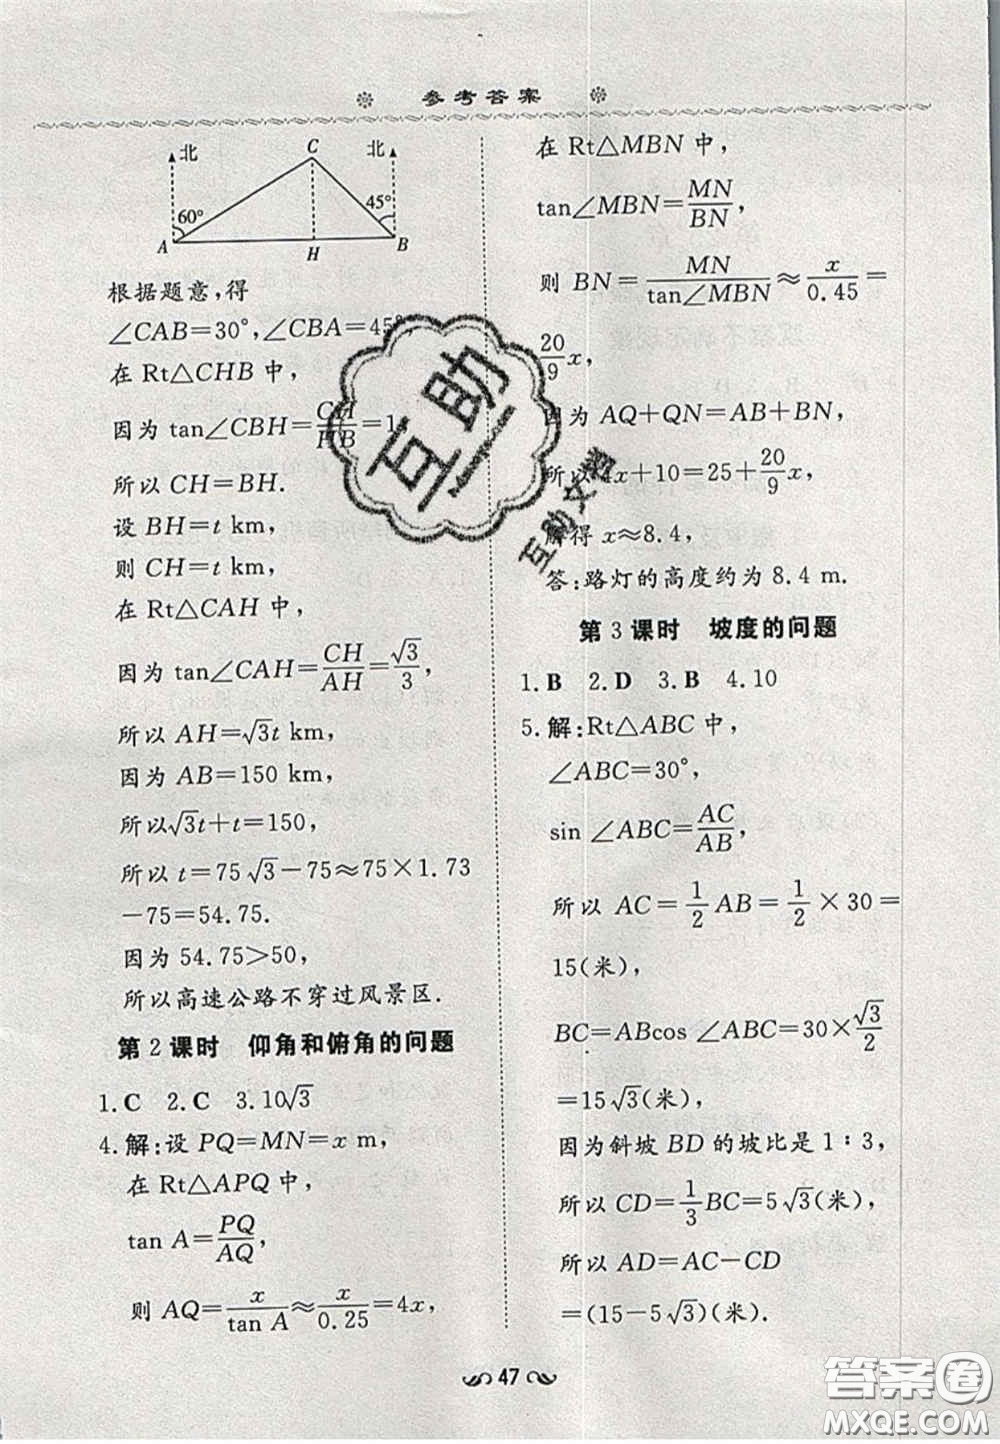 参考答案
北
C
北
60°
45°
A
H
B
根据题意,得
∠CAB=30°,∠CBA=45°,
在 Rt△CHB 中,
因为 tan∠CBH=CH/HB=1,
所以 CH=BH.
设 BH=t km,
则 CH=t km,
在 Rt△CAH 中,
因为 tan∠CAH=CH/AH=√3/3,
所以 AH=√3t km,
因为 AB=150 km,
所以√3t+t=150,
所以 t=75√3-75≈75×1.73
-75=54.75.
因为 54.75>50,
所以高速公路不穿过风景区.
第 2 课时 仰角和俯角的问题
1.C 2.C 3.10√3
4.解:设 PQ=MN=x m,
在 Rt△APQ 中,
tan A=PQ/AQ,
则 AQ=x/tan A≈x/0.25=4x,
在 Rt△MBN 中,
tan∠MBN=MN/BN,
则 BN=MN/tan∠MBN≈x/0.45=
20/9x,
因为 AQ+QN=AB+BN,
所以 4x+10=25+20/9x,
解得 x≈8.4,
答:路灯的高度约为 8.4 m.
第 3 课时 坡度的问题
1.B 2.D 3.B 4.10
5.解:Rt△ABC 中,
∠ABC=30°,
sin ∠ABC=AC/AB,
所以 AC=1/2 AB=1/2×30=
15(米),
BC=ABcos ∠ABC=30×√3/2
=15√3(米),
因为斜坡 BD 的坡比是 1∶3,
所以 CD=1/3BC=5√3(米),
所以 AD=AC-CD
=(15-5√3)(米).
47
互助
互助文档
答案圈
MXQE.COM